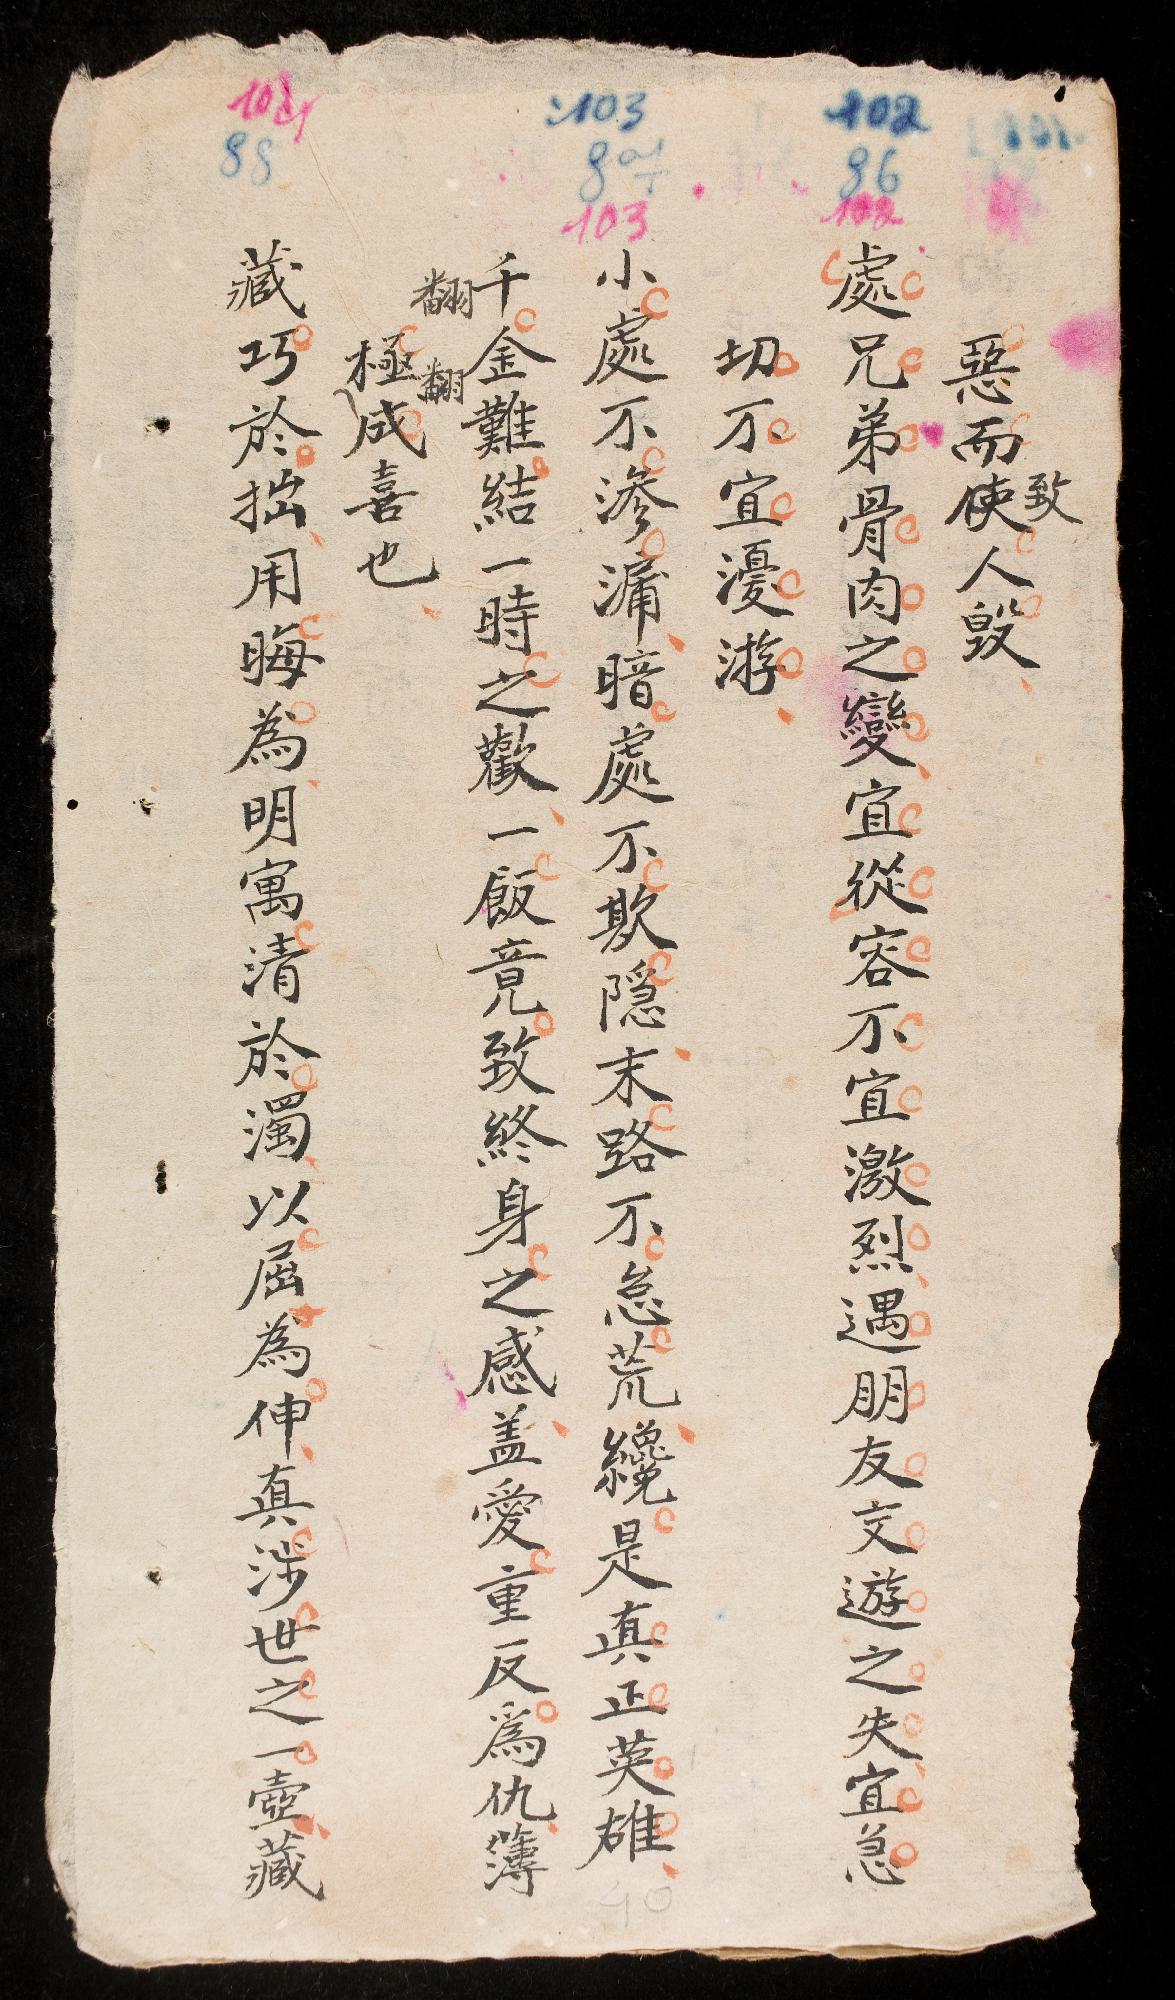 惡而使人毀
致
處兄弟骨肉之變宜從容不宜激烈遇朋友交遊之失宜急
切不宜優游
小處不滲漏暗處不欺隱末路不怠荒纔是真正英雄
千金難結一時之歡一飯竟致終身之感盖愛重反爲仇薄
翻
翻
極成喜也
藏巧於拙用晦為明寓清於濁以屈為伸真涉世之一壺藏
102
96
102
103
103
88
40